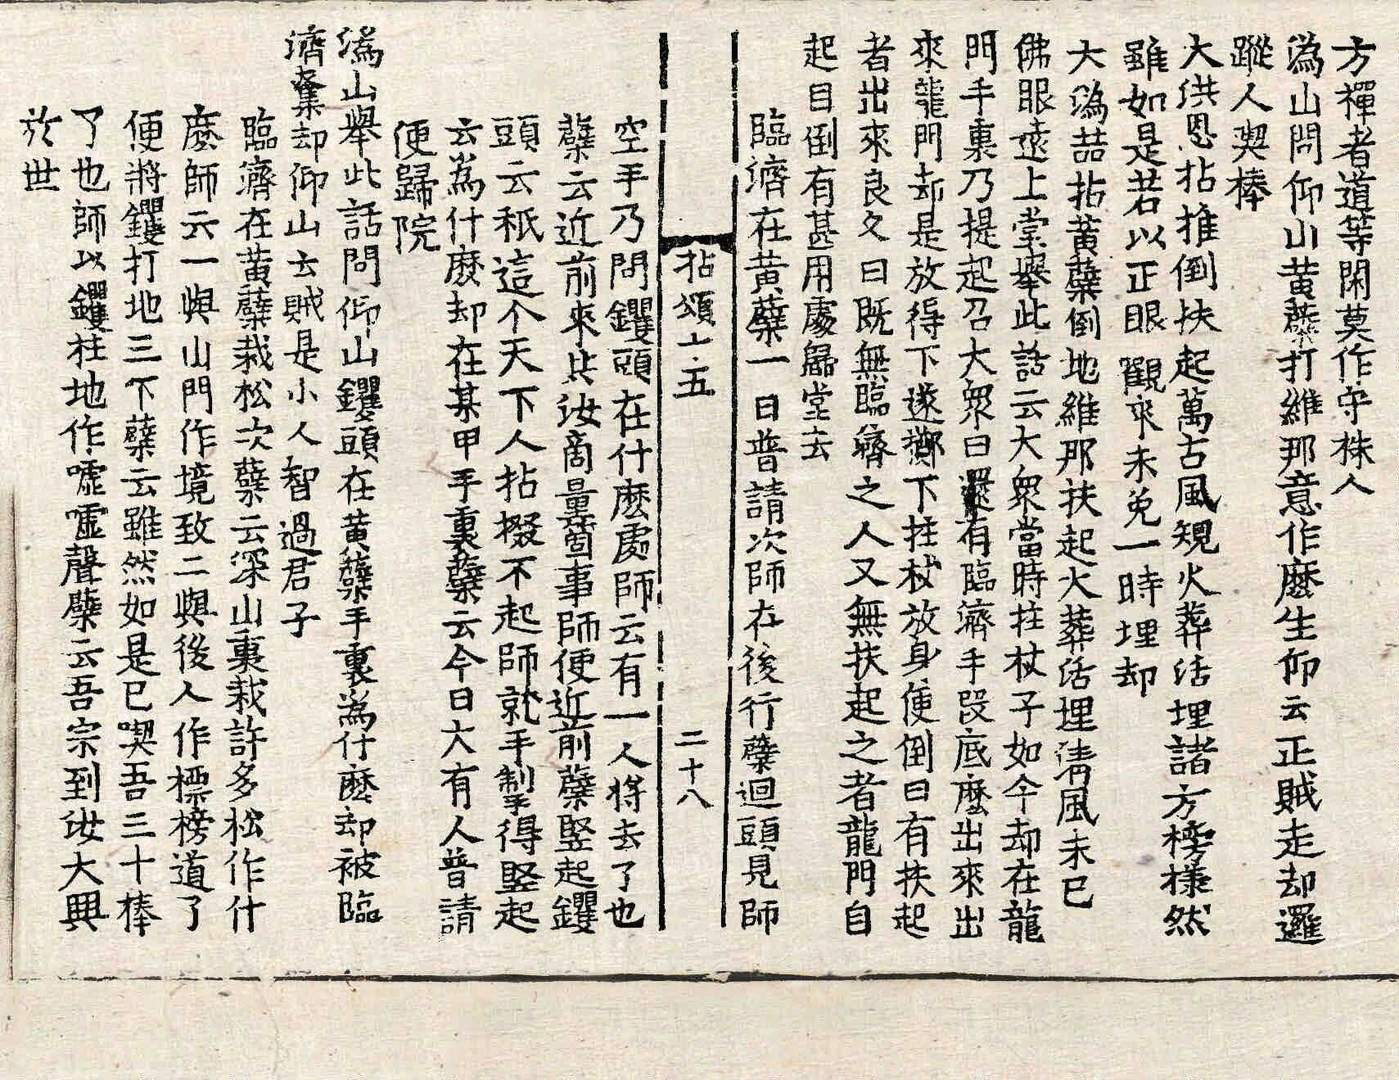 方禪者道等閑莫作守株人
溈山問仰山黃蘗打維那意作麼生仰云正賊走却邏
蹤人喫棒
大洪恩拈推倒扶起萬古風規火葬活埋諸方榜樣然
雖如是若以正眼觀來未免一時埋却
大溈喆拈黃蘗倒地維那扶起火葬活埋淸風未已
佛眼遠上堂舉此話云大衆當時拄杖子如今却在龍
門手裏乃提起召大衆曰還有臨濟手段底麼出來出
來龍門却是放得下遂擲下拄杖放身便倒曰有扶起
者出來良久曰旣無臨濟之人又無扶起之者龍門自
起目倒有甚用處歸堂去
臨濟在黃蘗一日普請次師在後行蘗迴頭見師
拈頌上·五
二十八
空手乃問钁頭在什麼處師云有一人將去了也
蘗云近前來共汝商量箇事師便近前蘗竪起钁
頭云秖這个天下人拈掇不起師就手掣得竪起
云爲什麼却在某甲手裏蘗云今日大有人普請
便歸院
溈山舉此話問仰山钁頭在黃蘗手裏爲什麼却被臨
濟奪却仰山云賊是小人智過君子
臨濟在黃蘗栽松次蘗云深山裏栽許多松作什
麼師云一與山門作境致二與後人作標榜道了
便將钁打地三下蘗云雖然如是已喫吾三十棒
了也師以钁柱地作噓噓聲蘗云吾宗到汝大興
於世